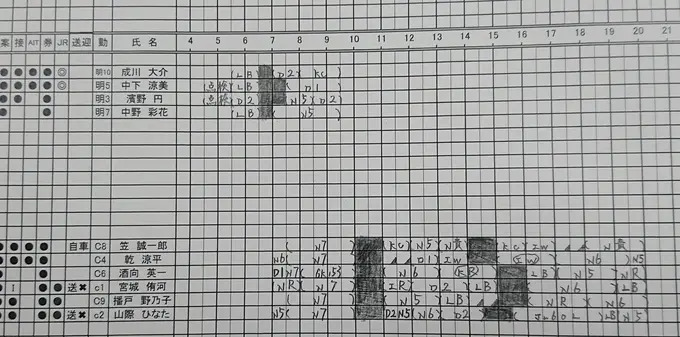 案 接 AIT 券 JR 送迎 勤 氏 名 4 5 6 7 8 9 10 11 12 13 14 15 16 17 18 19 20 21
● ● ● ● ◎ 明10 成川 大介 (LB (D2)( KC )
● ● ● ● ◎ 明5 中下 涼美 (点検)(LB ( D1 )
● ● ● 明3 濱野 円 (点検(D2 )(N5)(D2)
● ● 明7 中野 彩花 (LB )( N5 )
● ● ● ● 自車 C8 笠 誠一郎 ( N7 ) (KC)(N5)(N貴) (KC)(IW ( N貴 )
● ● ● ● C4 乾 涼平 N6( N7 ) D1)(IW (IW) ( N6 )N5
● ● C6 酒向 英一 ( N6 ) (KR) (LB )( N5 )(N R)
● I ● ● 送✖ c1 宮城 侑河 (NR)( N7 ) (IR)( D2 )(LB) ( N6 )(LB)
● ● ● C9 播戸 野乃子 ( N7 ) ( N5 )(LB) ( NR )( N6 )
● ● ● 送✖ c2 山際 ひなた N5( N7 ) D2N5(N6)( D2 ) )LB(N5)